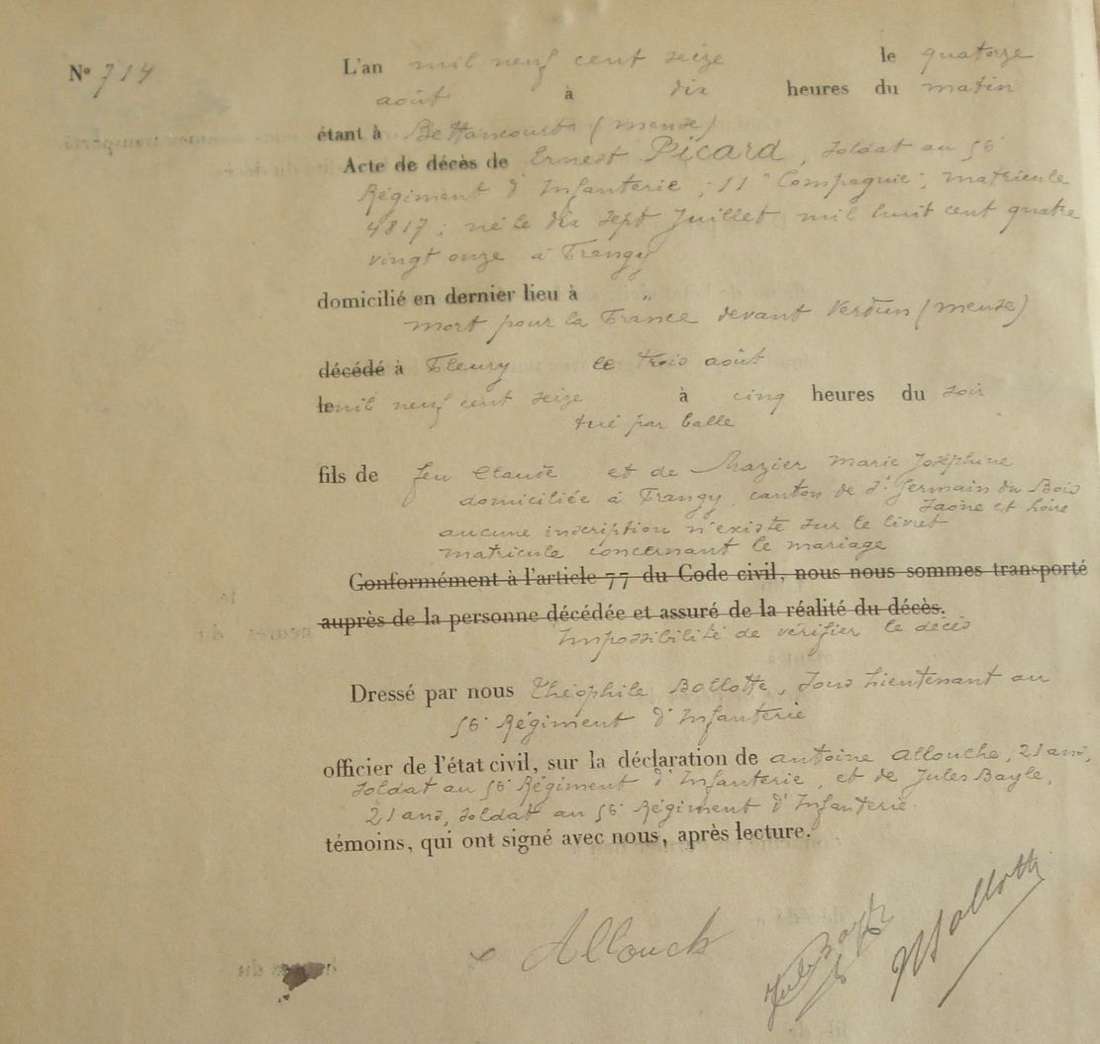 N° 714
L'an mil neuf cent seize le quatorze
août à dix heures du matin
étant à Bettancourt (meuse)
Acte de décès de Ernest Picard, soldat au 56
Régiment d'Infanterie ; 11e Compagnie ; matricule
4817 ; né le dix sept Juillet mil huit cent quatre
vingt onze à Frangy
domicilié en dernier lieu à "
mort pour la France devant Verdun (meuse)
décédé à Fleury le trois août
le mil neuf cent seize à cinq heures du soir
tué par balle
fils de feu Claude et de Mazier Marie Joséphine
domiciliée à Frangy, canton de St Germain du Bois
Saône et Loire
aucune inscription n'existe sur le livret
matricule concernant le mariage
Conformément à l'article 77 du Code civil, nous nous sommes transporté
auprès de la personne décédée et assuré de la réalité du décès.
Impossibilité de vérifier le décès
Dressé par nous Théophile Bollotte, Sous Lieutenant au
56e Régiment d'Infanterie
officier de l'état civil, sur la déclaration de antoine allouche, 21 ans,
soldat au 56e Régiment d'Infanterie, et de Jules Bayle,
21 ans, soldat au 56e Régiment d'Infanterie.
témoins, qui ont signé avec nous, après lecture.
Allouch
Jules Bayle
Bollotte